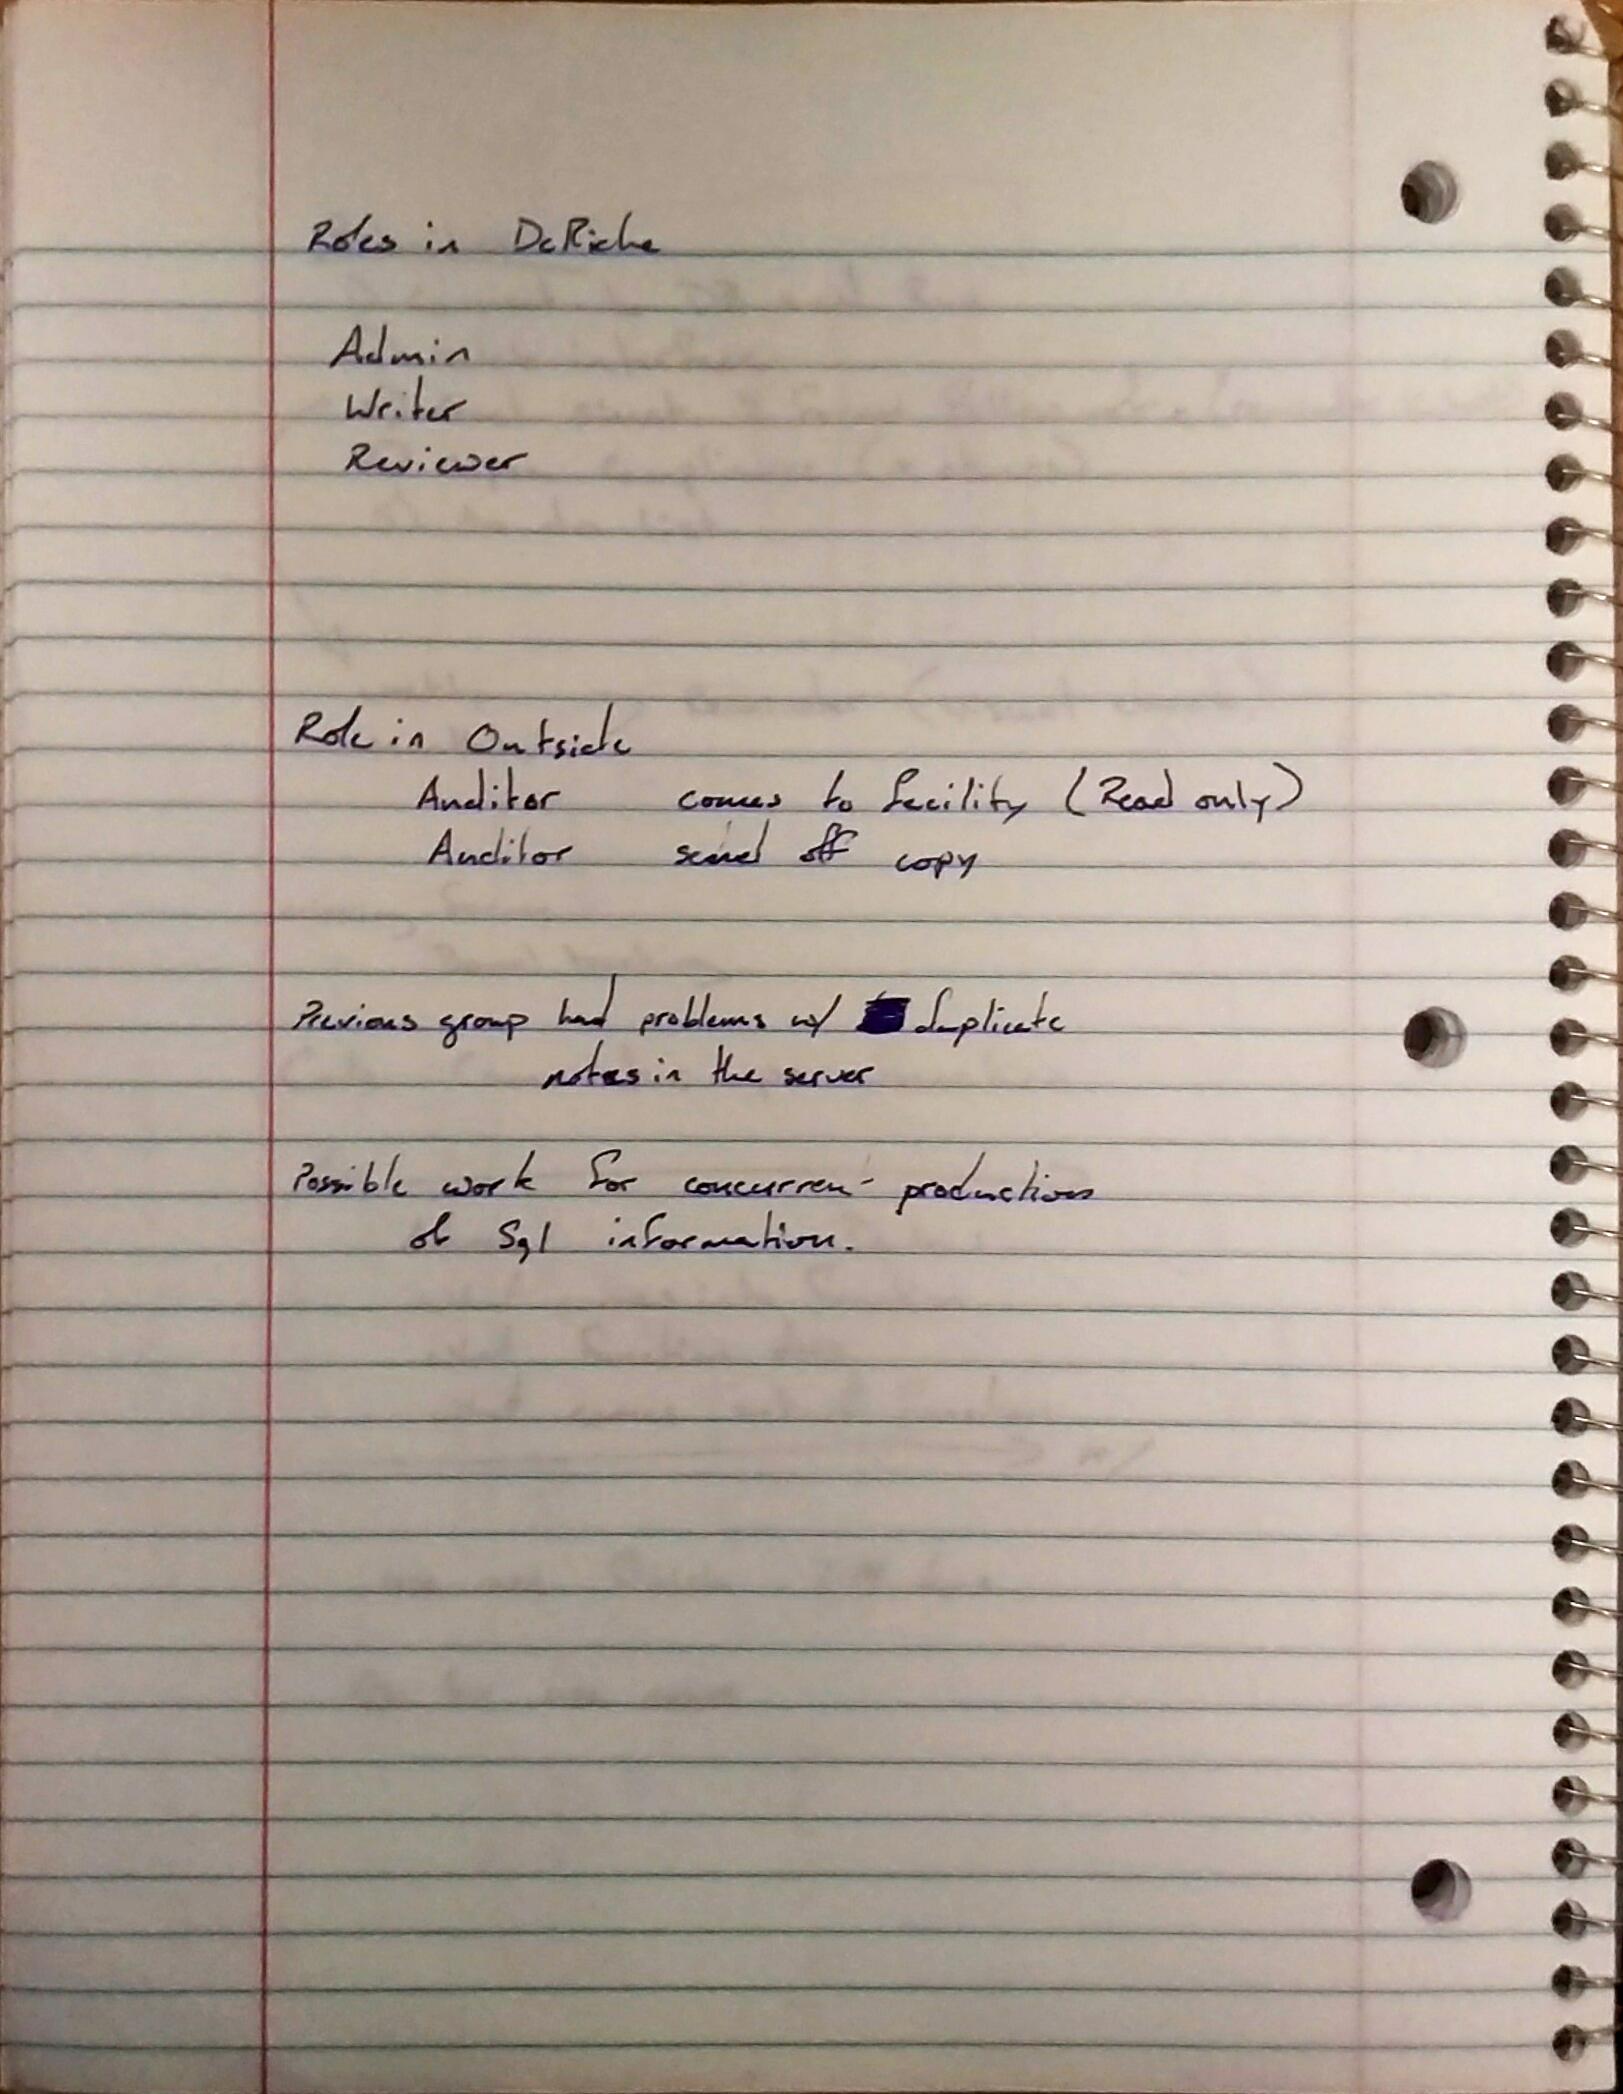 Roles in DeRiche
Admin
Writer
Reviewer
Role in Outside
Auditor comes to facility (Read only)
Auditor send off copy
Previous group had problems w/ duplicate
notes in the server
Possible work for concurrent productions
of Sql information.